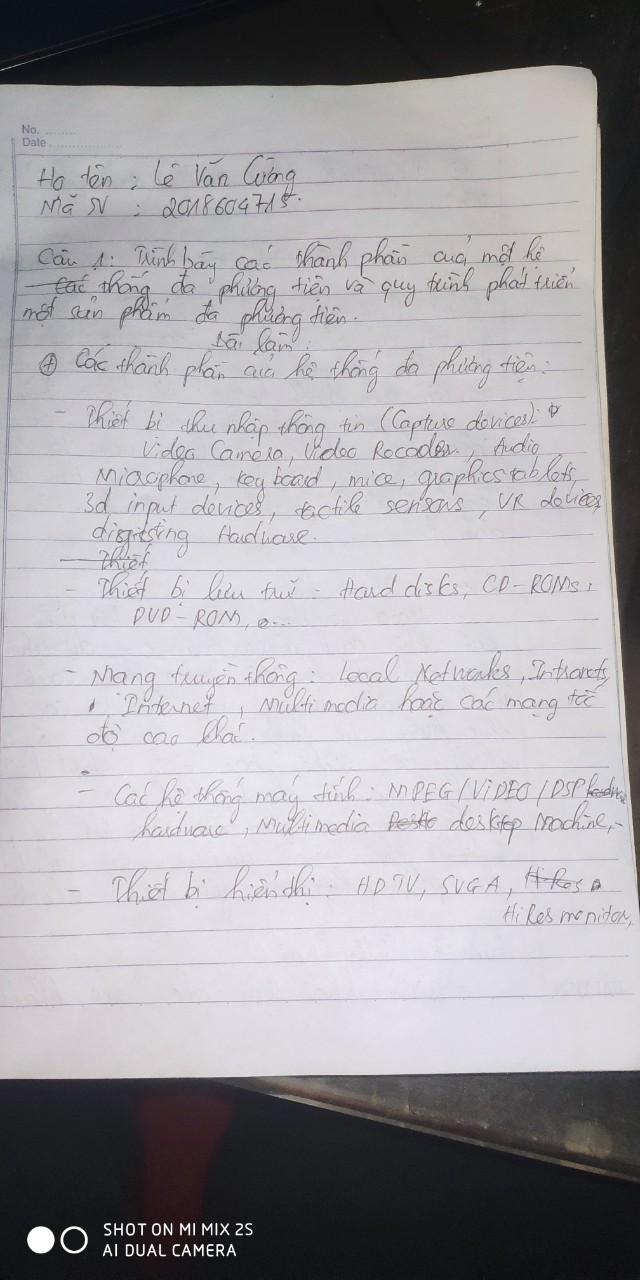 No. ........
Date ....................
Họ tên : Lê Văn Cường
Mã SV : 2018604715.
Câu 1: Trình bày các thành phần của một hệ
Các thống đa phương tiện và quy trình phát triển
một sản phẩm đa phương tiện.
Bài làm:
+ Các thành phần của hệ thống đa phương tiện:
- Thiết bị thu nhập thông tin (Capture devices):
Video Camera, Video Recoder, Audio
Microphone, keyboard, mice, graphics tablets,
3d input devices, tactile sensors, VR devices
digitsting Hardware.
Thiết
- Thiết bị lưu trữ : Hard disks, CD-ROMs,
DVD-ROM, ...
- Mạng truyền thông : Local Networks, Intranets,
Internet, Multimedia hoặc các mạng tốc
độ cao khác.
- Các hệ thống máy tính : MPEG/VIDEO/DSP hardware
hardware, Multimedia Deskto desktop Machine,
- Thiết bị hiển thị : HDTV, SVGA, Hi-Res
Hi Res monitor,
SHOT ON MI MIX 2S
AI DUAL CAMERA